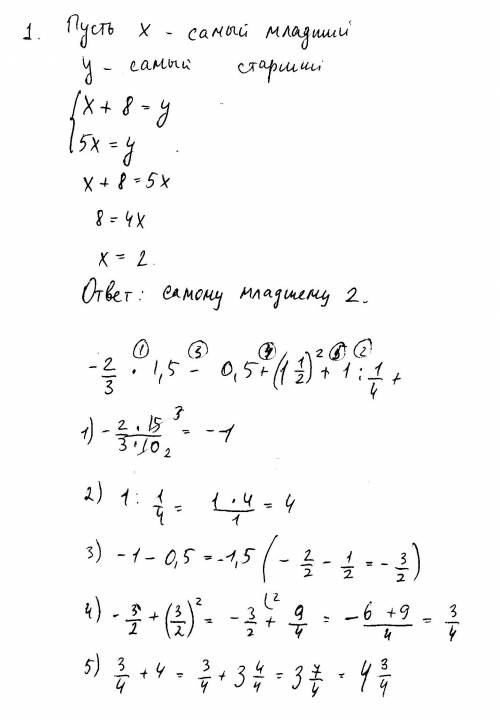 1. Пусть x - самый младший
y - самый старший
{ x + 8 = y
5x = y .
x + 8 = 5x
8 = 4x
x = 2.
Ответ: самому младшему 2.
① ③ ④ ⑤ ②
-2/3 · 1,5 - 0,5 + (1 1/2)² + 1 : 1/4 +
1) - 2·15³/3·10₂ = -1
2) 1 : 1/4 = 1·4/1 = 4
3) -1 - 0,5 = -1,5 (- 2/2 - 1/2 = - 3/2)
4) - 3/2 + (3/2)² = - 3/2 (² + 9/4 = -6+9/4 = 3/4
5) 3/4 + 4 = 3/4 + 3 4/4 = 3 7/4 = 4 3/4